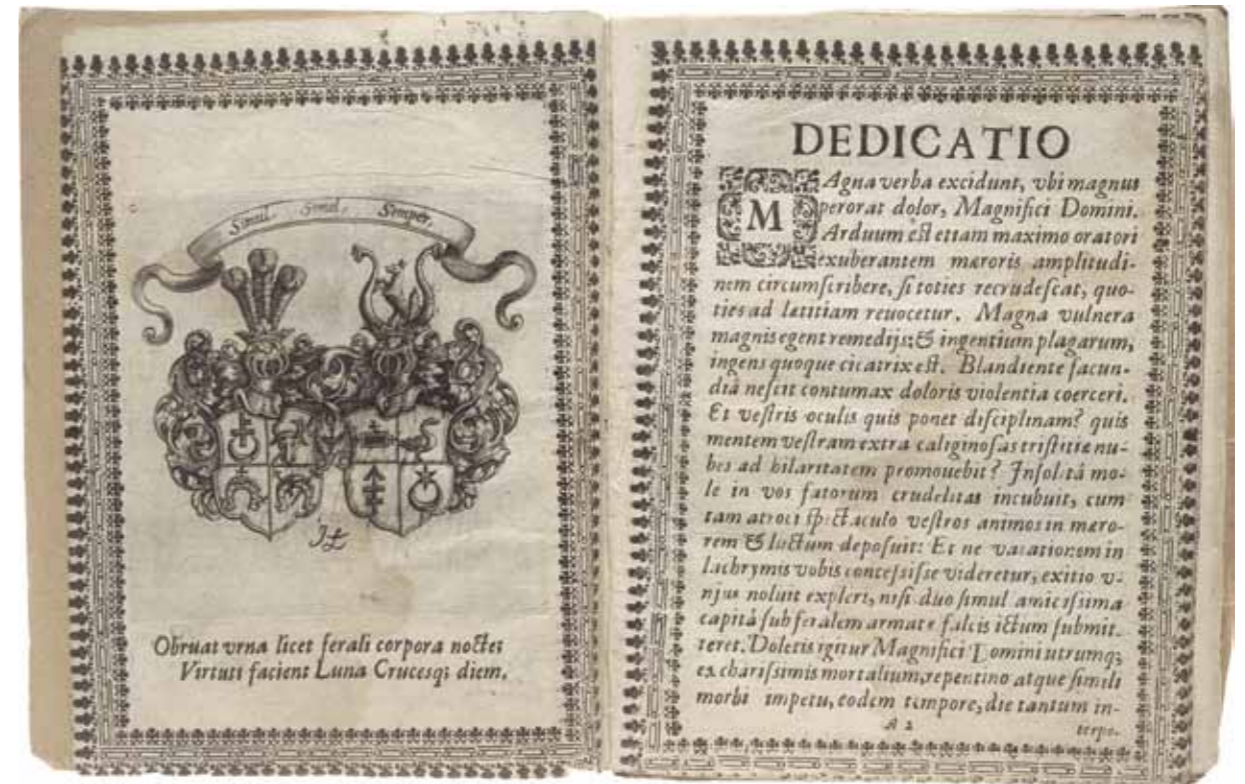 Simul. Semel. Semper.
Obruat vrna licet ferali corpora nocte:
Virtuti facient Luna Crucesq; diem.
DEDICATIO
MAgna verba excidunt, vbi magnus
perorat dolor, Magnifici Domini.
Arduum est etiam maximo oratori
exuberantem mæroris amplitudi-
nem circumscribere, si toties recrudescat, quo-
ties ad lætitiam reuocetur. Magna vulnera
magnis egent remedijs: & ingentium plagarum,
ingens quoque cicatrix est. Blandiente facun-
diâ nescit contumax doloris violentia coerceri.
Et vestris oculis quis ponet disciplinam? quis
mentem vestram extra caliginosas tristitiæ nu-
bes ad hilaritatem promouebit? Insolitâ mo-
le in vos fatorum crudelitas incubuit, cum
tam atroci spectaculo vestros animos in mæro-
rem & luctum deposuit: Et ne vacationem in
lachrymis vobis concessisse videretur, exitio v-
nius noluit expleri, nisi duo simul amicissima
capita sub feralem armatæ falcis ictum submit-
teret. Doletis igitur Magnifici Domini utrumq;
ex charissimis mortalium, repentino atque simili
morbi impetu, eodem tempore, die tantum in-
A 2
terpo-